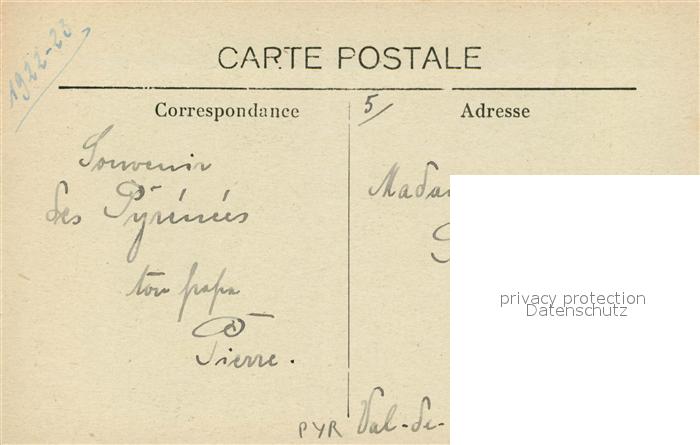 1922-23
CARTE POSTALE
Correspondance
5/
Adresse
Souvenir
des Pyrénées
ton papa
Pierre.
Mada
privacy protection
Datenschutz
PYR Val-de-